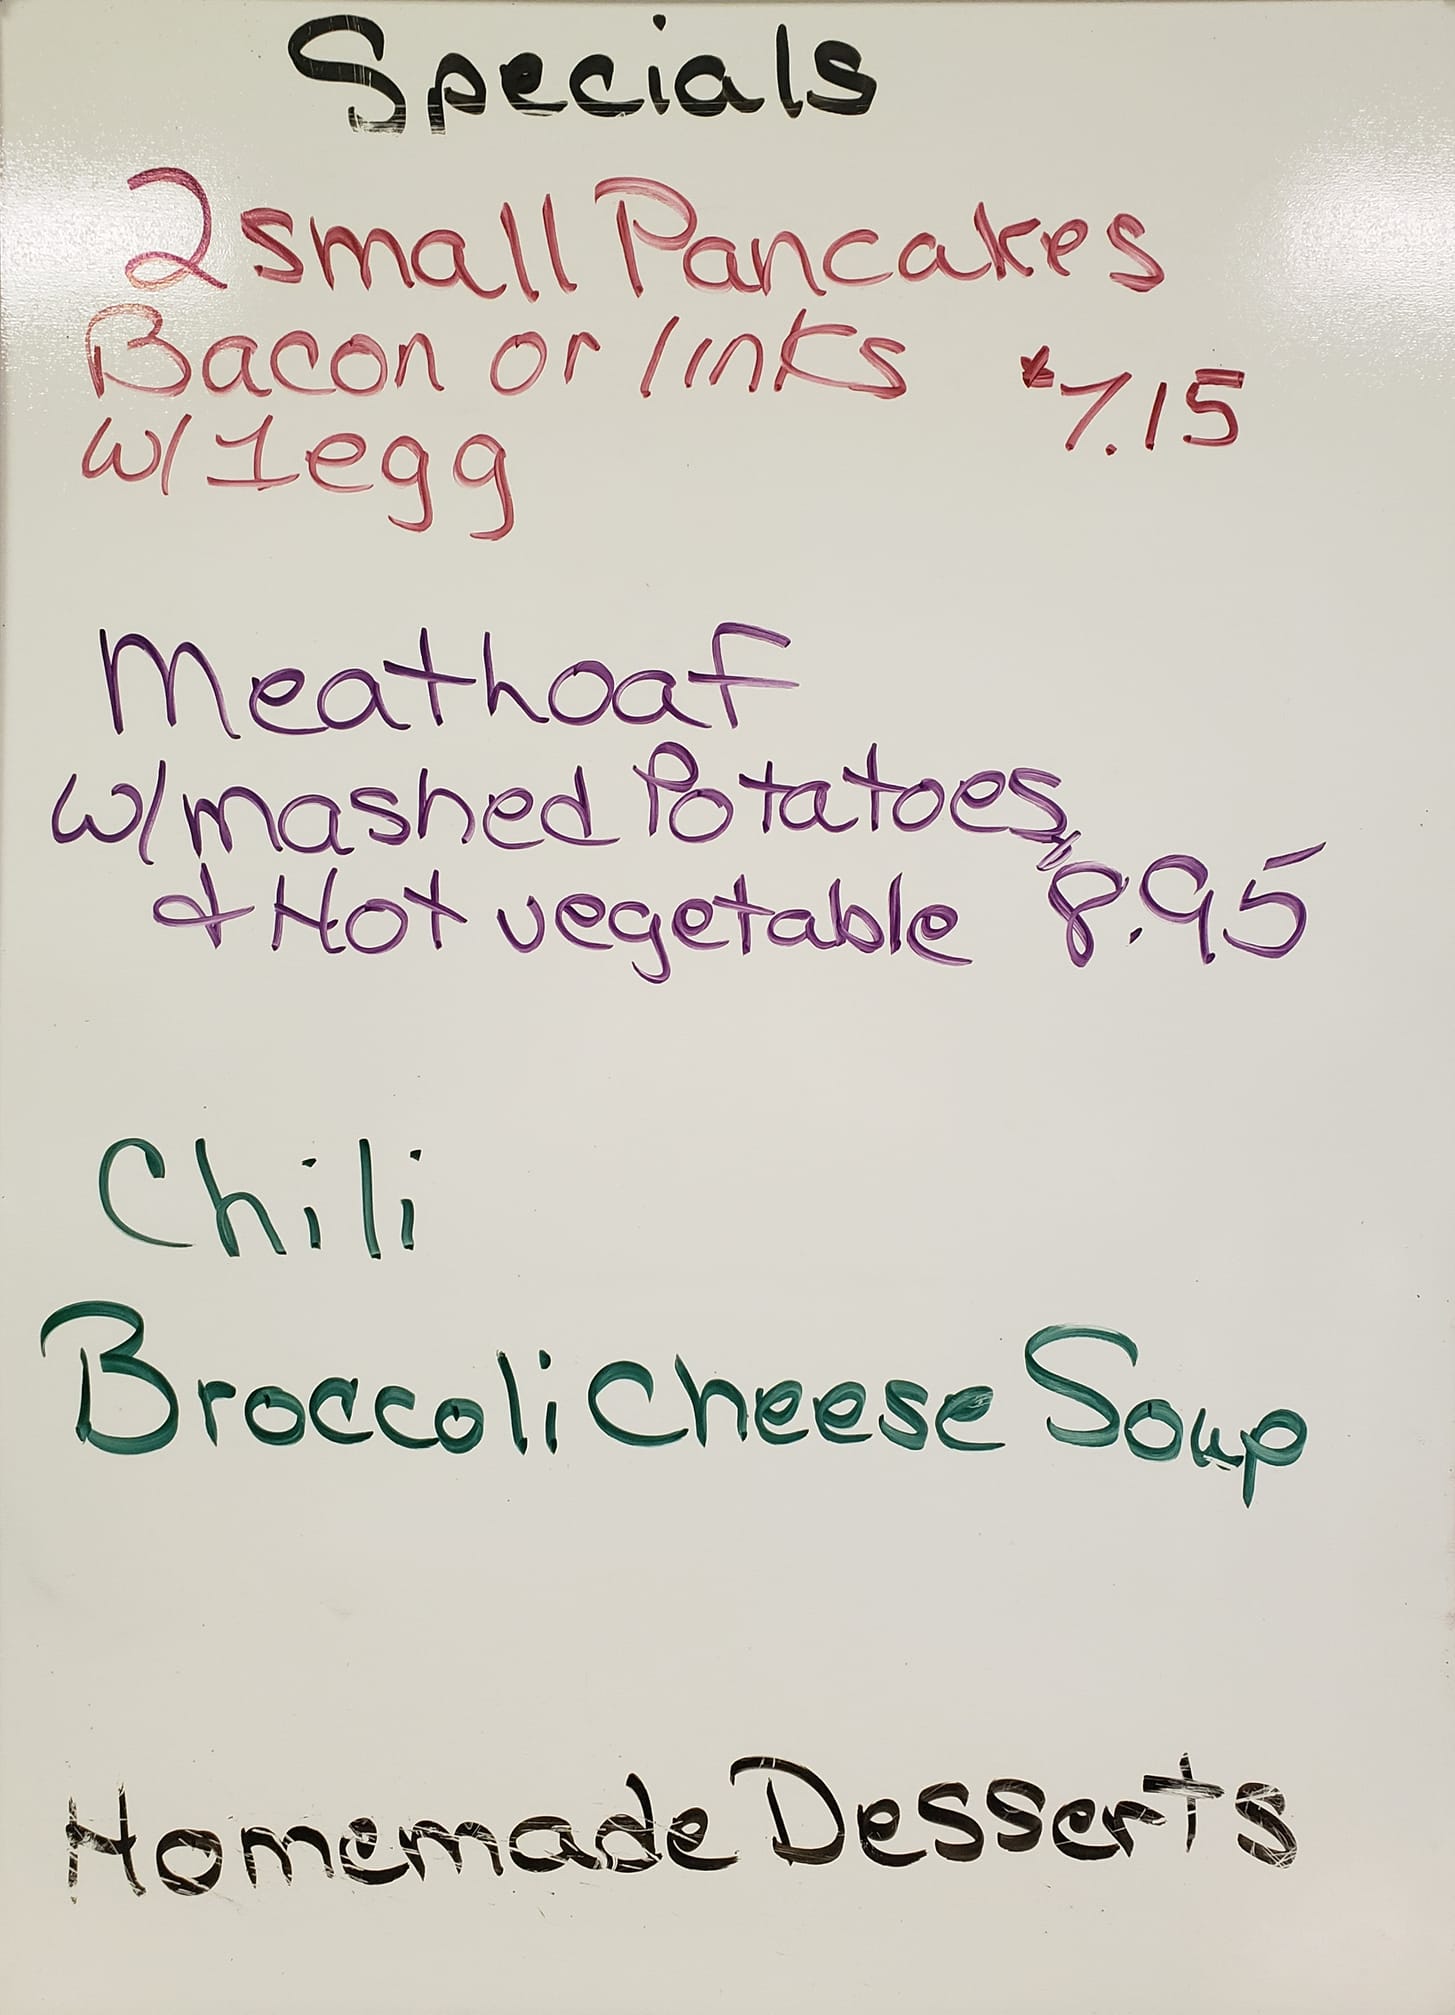 Specials
2 small Pancakes
Bacon or links $7.15
w/ 1 egg
Meatloaf
w/ mashed Potatoes
& Hot vegetable $8.95
Chili
Broccoli Cheese Soup
Homemade Desserts